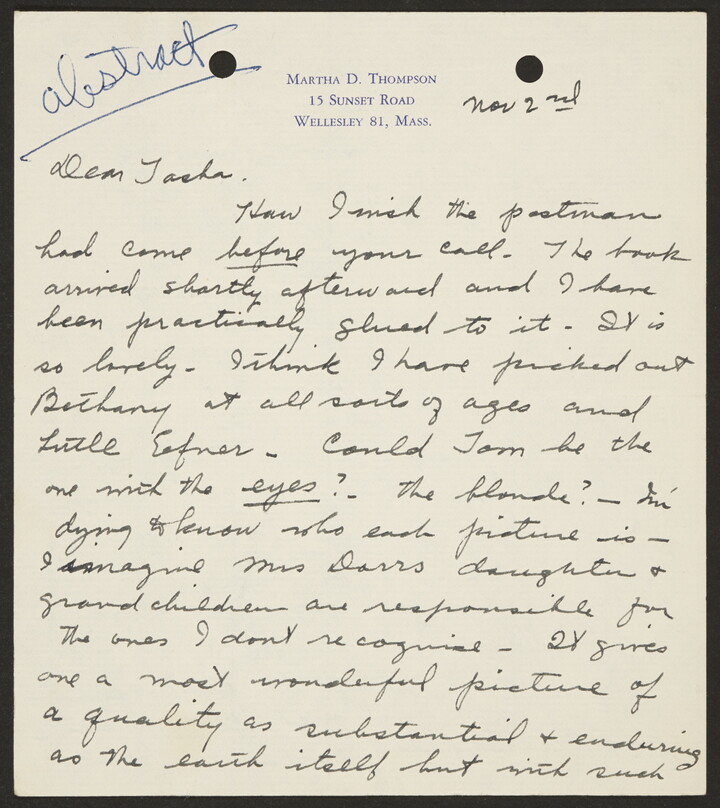 abstract
MARTHA D. THOMPSON
15 SUNSET ROAD
WELLESLEY 81, MASS.
Nov 2nd
Dear Tasha.
How I wish the postman
had come before your call. The book
arrived shortly afterward and I have
been practically glued to it - It is
so lovely - I think I have picked out
Bethany at all sorts of ages and
Little Eefner - Could Tom be the
one with the eyes? - the blonde? - I'm
dying to know who each picture is -
I imagine Mrs Dorrs daughter &
grandchildren are responsible for
the ones I don't recognise - It gives
one a most wonderful picture of
a quality as substantial & enduring
as the earth itself but with such